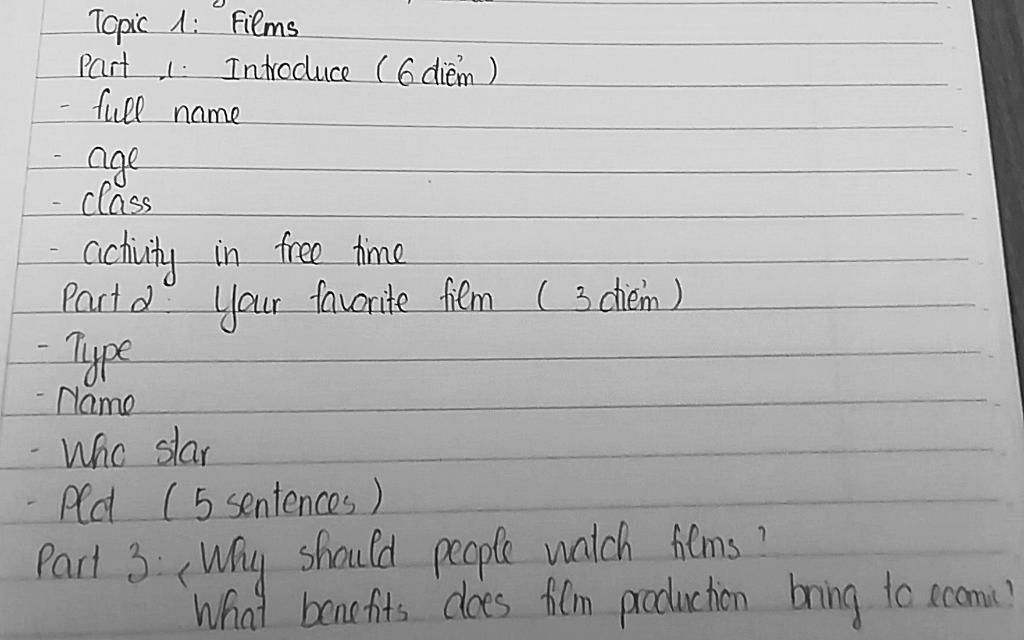 Topic 1: Films
Part 1: Introduce (6 điểm)
- full name
- age
- class
- activity in free time
Part 2: Your favorite film (3 điểm)
- Type
- Name
- Who star
- Plot (5 sentences)
Part 3: Why should people watch films?
What benefits does film production bring to